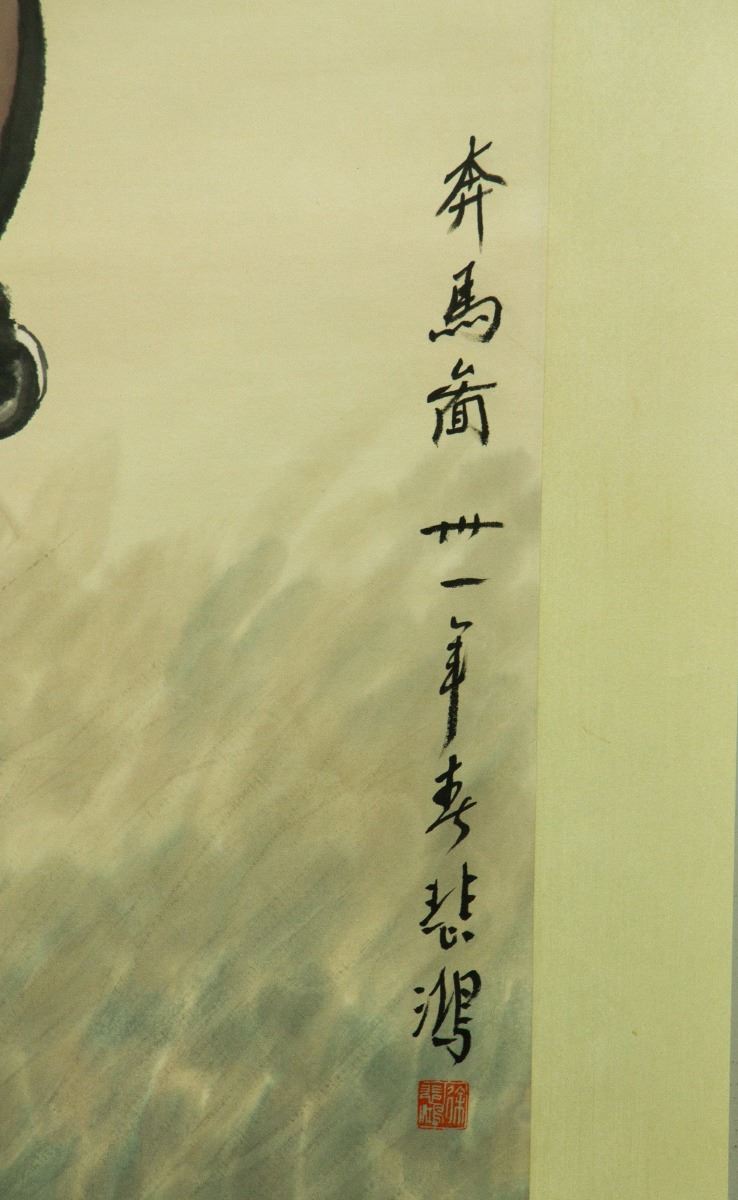 奔馬啚 卅一年春悲鴻
徐悲鴻